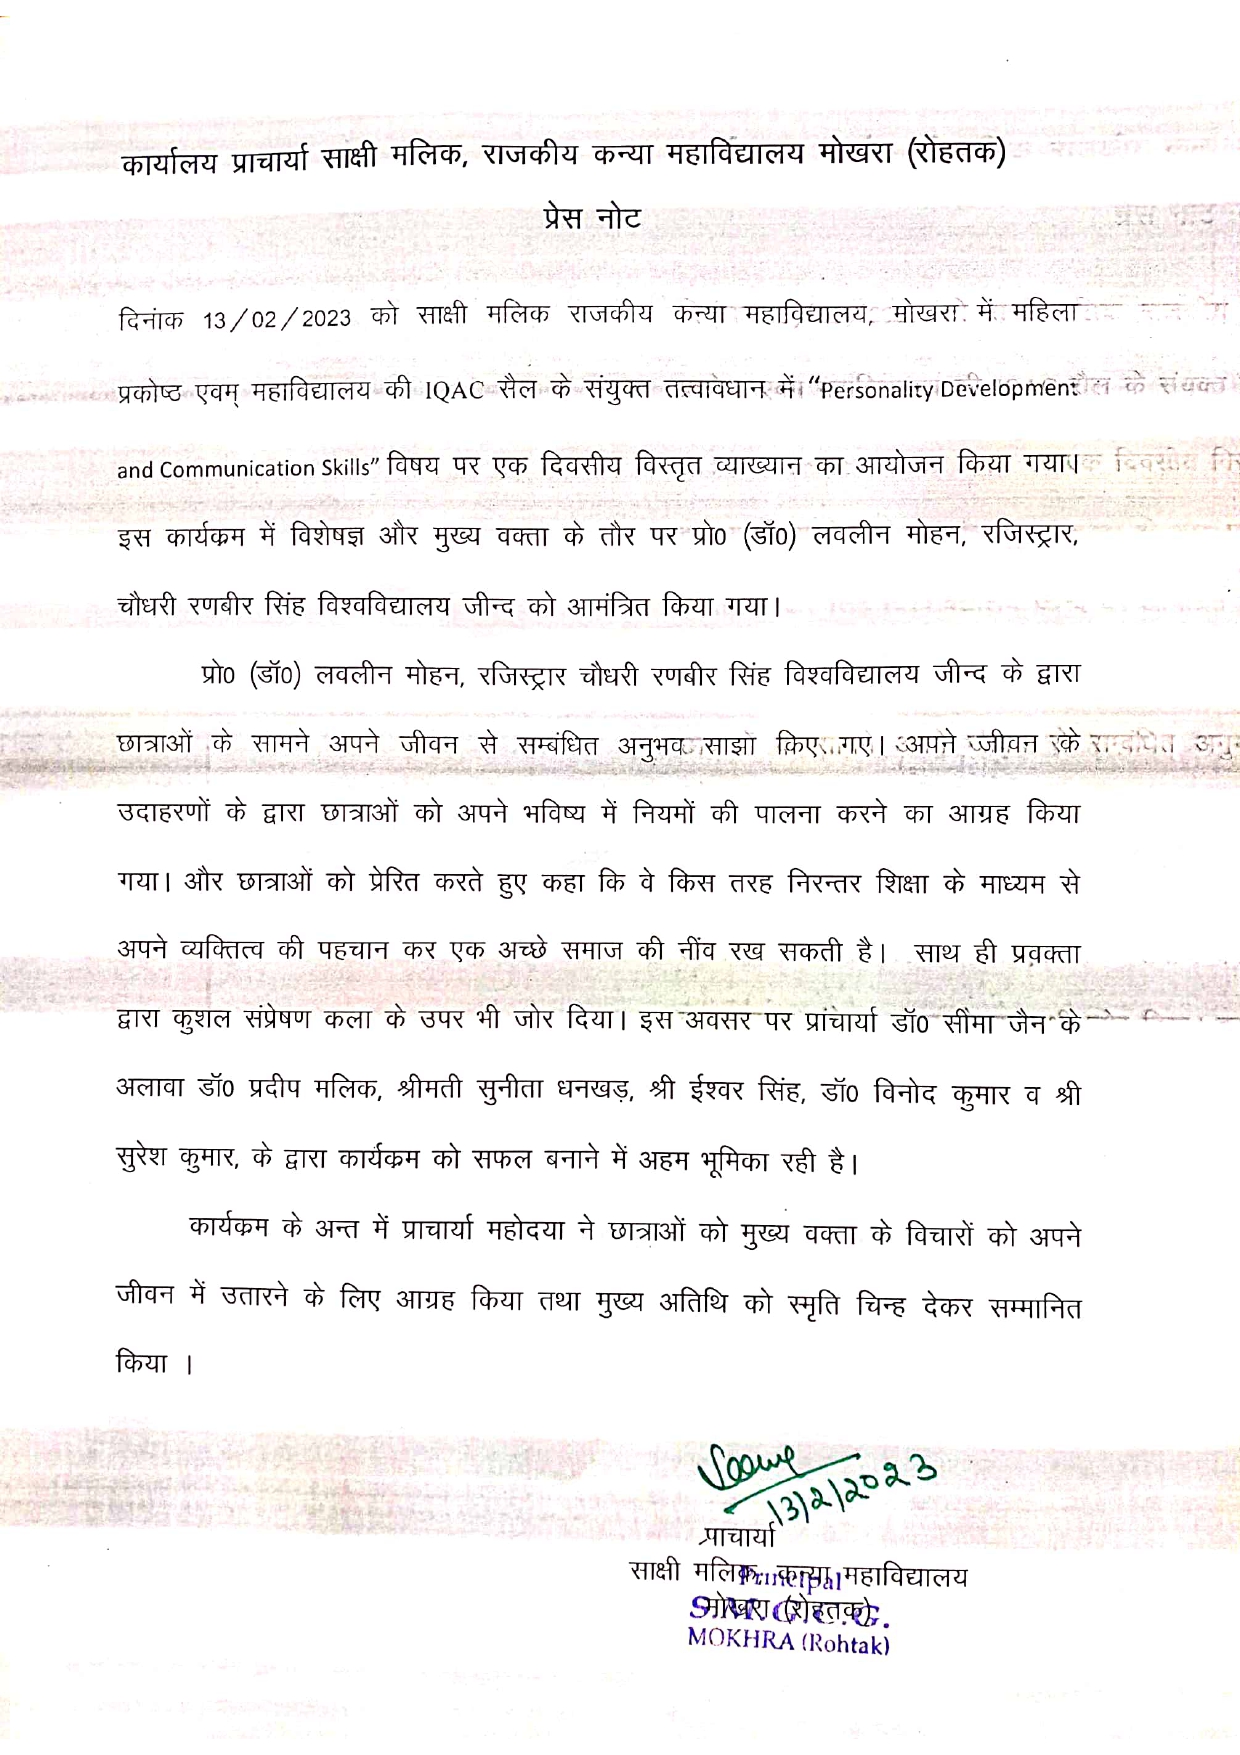 कार्यालय प्राचार्या साक्षी मलिक, राजकीय कन्या महाविद्यालय मोखरा (रोहतक)
प्रेस नोट
दिनांक 13/02/2023 को साक्षी मलिक राजकीय कन्या महाविद्यालय, मोखरा में महिला
प्रकोष्ठ एवम् महाविद्यालय की IQAC सैल के संयुक्त तत्वावधान में “Personality Development
and Communication Skills” विषय पर एक दिवसीय विस्तृत व्याख्यान का आयोजन किया गया।
इस कार्यक्रम में विशेषज्ञ और मुख्य वक्ता के तौर पर प्रो0 (डॉ0) लवलीन मोहन, रजिस्ट्रार,
चौधरी रणबीर सिंह विश्वविद्यालय जीन्द को आमंत्रित किया गया।
प्रो0 (डॉ0) लवलीन मोहन, रजिस्ट्रार चौधरी रणबीर सिंह विश्वविद्यालय जीन्द के द्वारा
छात्राओं के सामने अपने जीवन से सम्बंधित अनुभव साझा किए गए। अपने जीवन के
उदाहरणों के द्वारा छात्राओं को अपने भविष्य में नियमों की पालना करने का आग्रह किया
गया। और छात्राओं को प्रेरित करते हुए कहा कि वे किस तरह निरन्तर शिक्षा के माध्यम से
अपने व्यक्तित्व की पहचान कर एक अच्छे समाज की नींव रख सकती है। साथ ही प्रवक्ता
द्वारा कुशल संप्रेषण कला के उपर भी जोर दिया। इस अवसर पर प्रांचार्या डॉ0 सीमा जैन के
अलावा डॉ0 प्रदीप मलिक, श्रीमती सुनीता धनखड़, श्री ईश्वर सिंह, डॉ0 विनोद कुमार व श्री
सुरेश कुमार, के द्वारा कार्यक्रम को सफल बनाने में अहम भूमिका रही है।
कार्यक्रम के अन्त में प्राचार्या महोदया ने छात्राओं को मुख्य वक्ता के विचारों को अपने
जीवन में उतारने के लिए आग्रह किया तथा मुख्य अतिथि को स्मृति चिन्ह देकर सम्मानित
किया ।
13/2/2023
प्राचार्या
साक्षी मलिक, कन्या महाविद्यालय
Principal
मोखरा (रोहतक)
S.M.G.C.G.
MOKHRA (Rohtak)